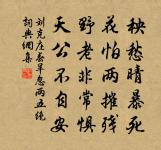 秧愁晴暴死
花怕雨摧残
野老非常惧
天公不自安
刘克庄春旱忽雨五绝
词典网集